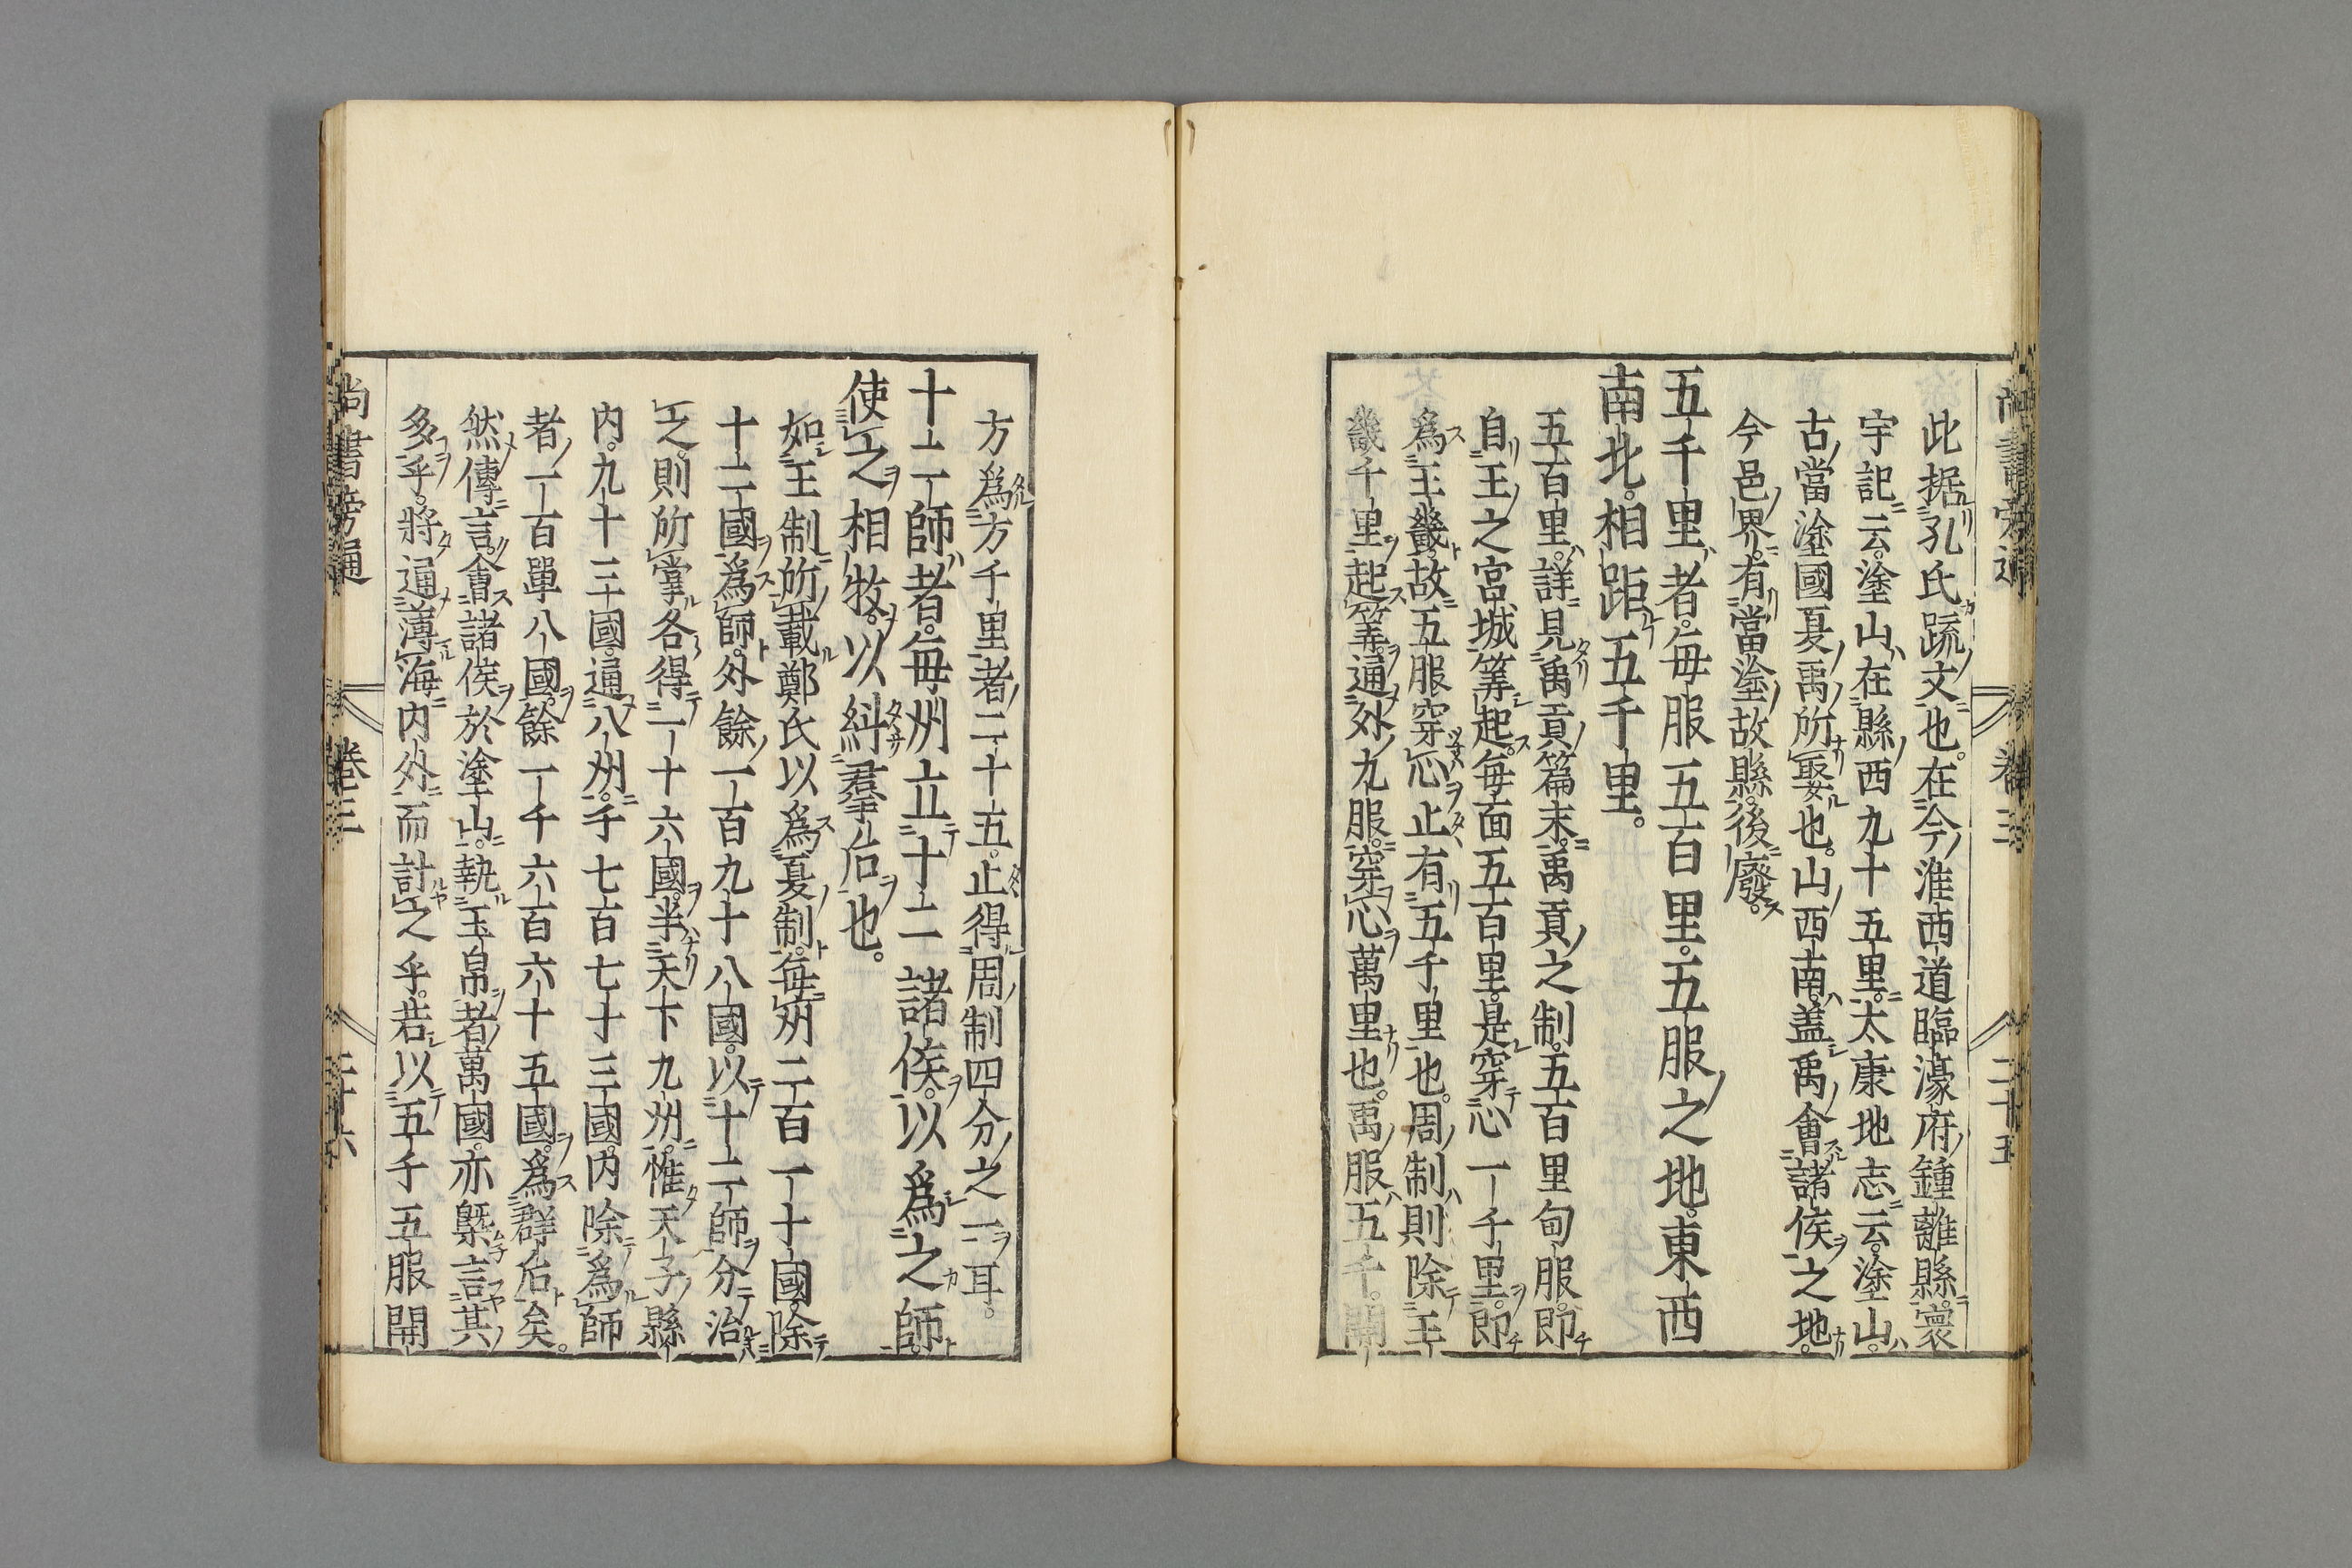 此据孔氏疏文也。在今淮西道臨濠府鍾離縣。寰
宇記云。塗山在縣西九十五里。太康地志云。塗山。
古當塗國夏禹所娶也。山西南。盖禹會諸侯之地。
今邑界。有當塗故縣。後廢。
五千里者。每服五百里。五服之地。東西
南北。相距五千里。
五百里。詳見禹貢篇末。禹貢之制。五百里甸服。即
自王之宮城筭起。每面五百里。是穿心一千里。即
為王畿。故五服穿心止有五千里也。周制則除王
畿千里起筭。通外九服。穿心萬里也。禹服五千。開
尚書旁通 卷三 二十五
方為方千里者二十五。止得周制四分之一耳。
十二師者。每州立十二諸侯。以為之師。
使之相牧。以糾羣后也。
如王制所載鄭氏以為夏制。每州二百一十國。除
十二國為師。外餘一百九十八國。以十二師分治
之。則所掌各得一十六國半。天下九州。惟天子縣
內。九十三國。通八州。千七百七十三國。內除為師
者一百單八國。餘一千六百六十五國。為群后矣。
然傳言會諸侯於塗山。執玉帛者萬國。亦槩言其
多乎。將通薄海內外而計之乎。若以五千五服開
尚書旁通 卷三 二十六